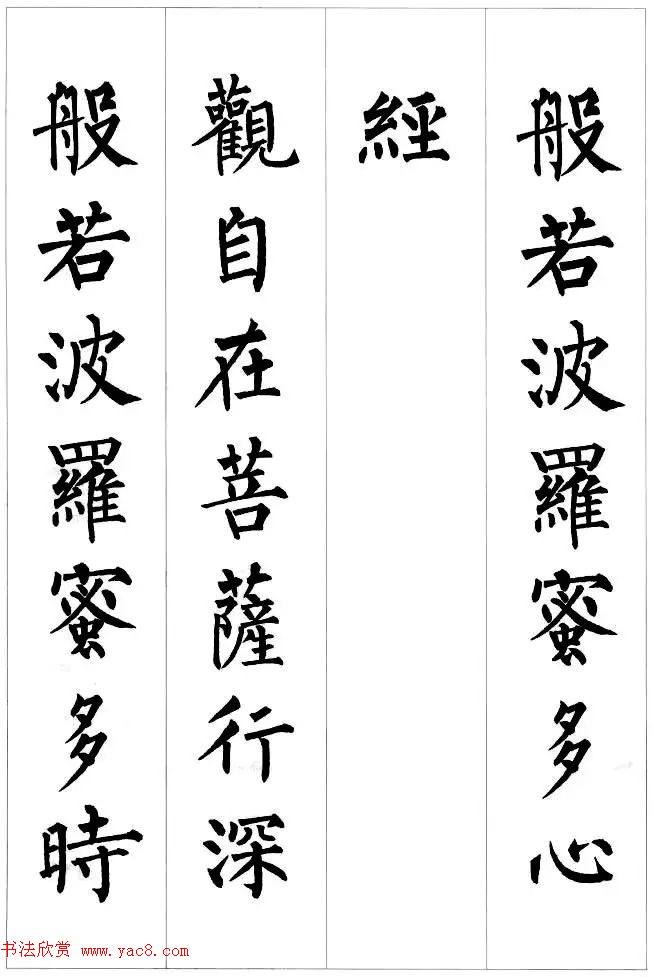 般若波羅蜜多心
經
觀自在菩薩行深
般若波羅蜜多時
书法欣赏 www.yac8.com